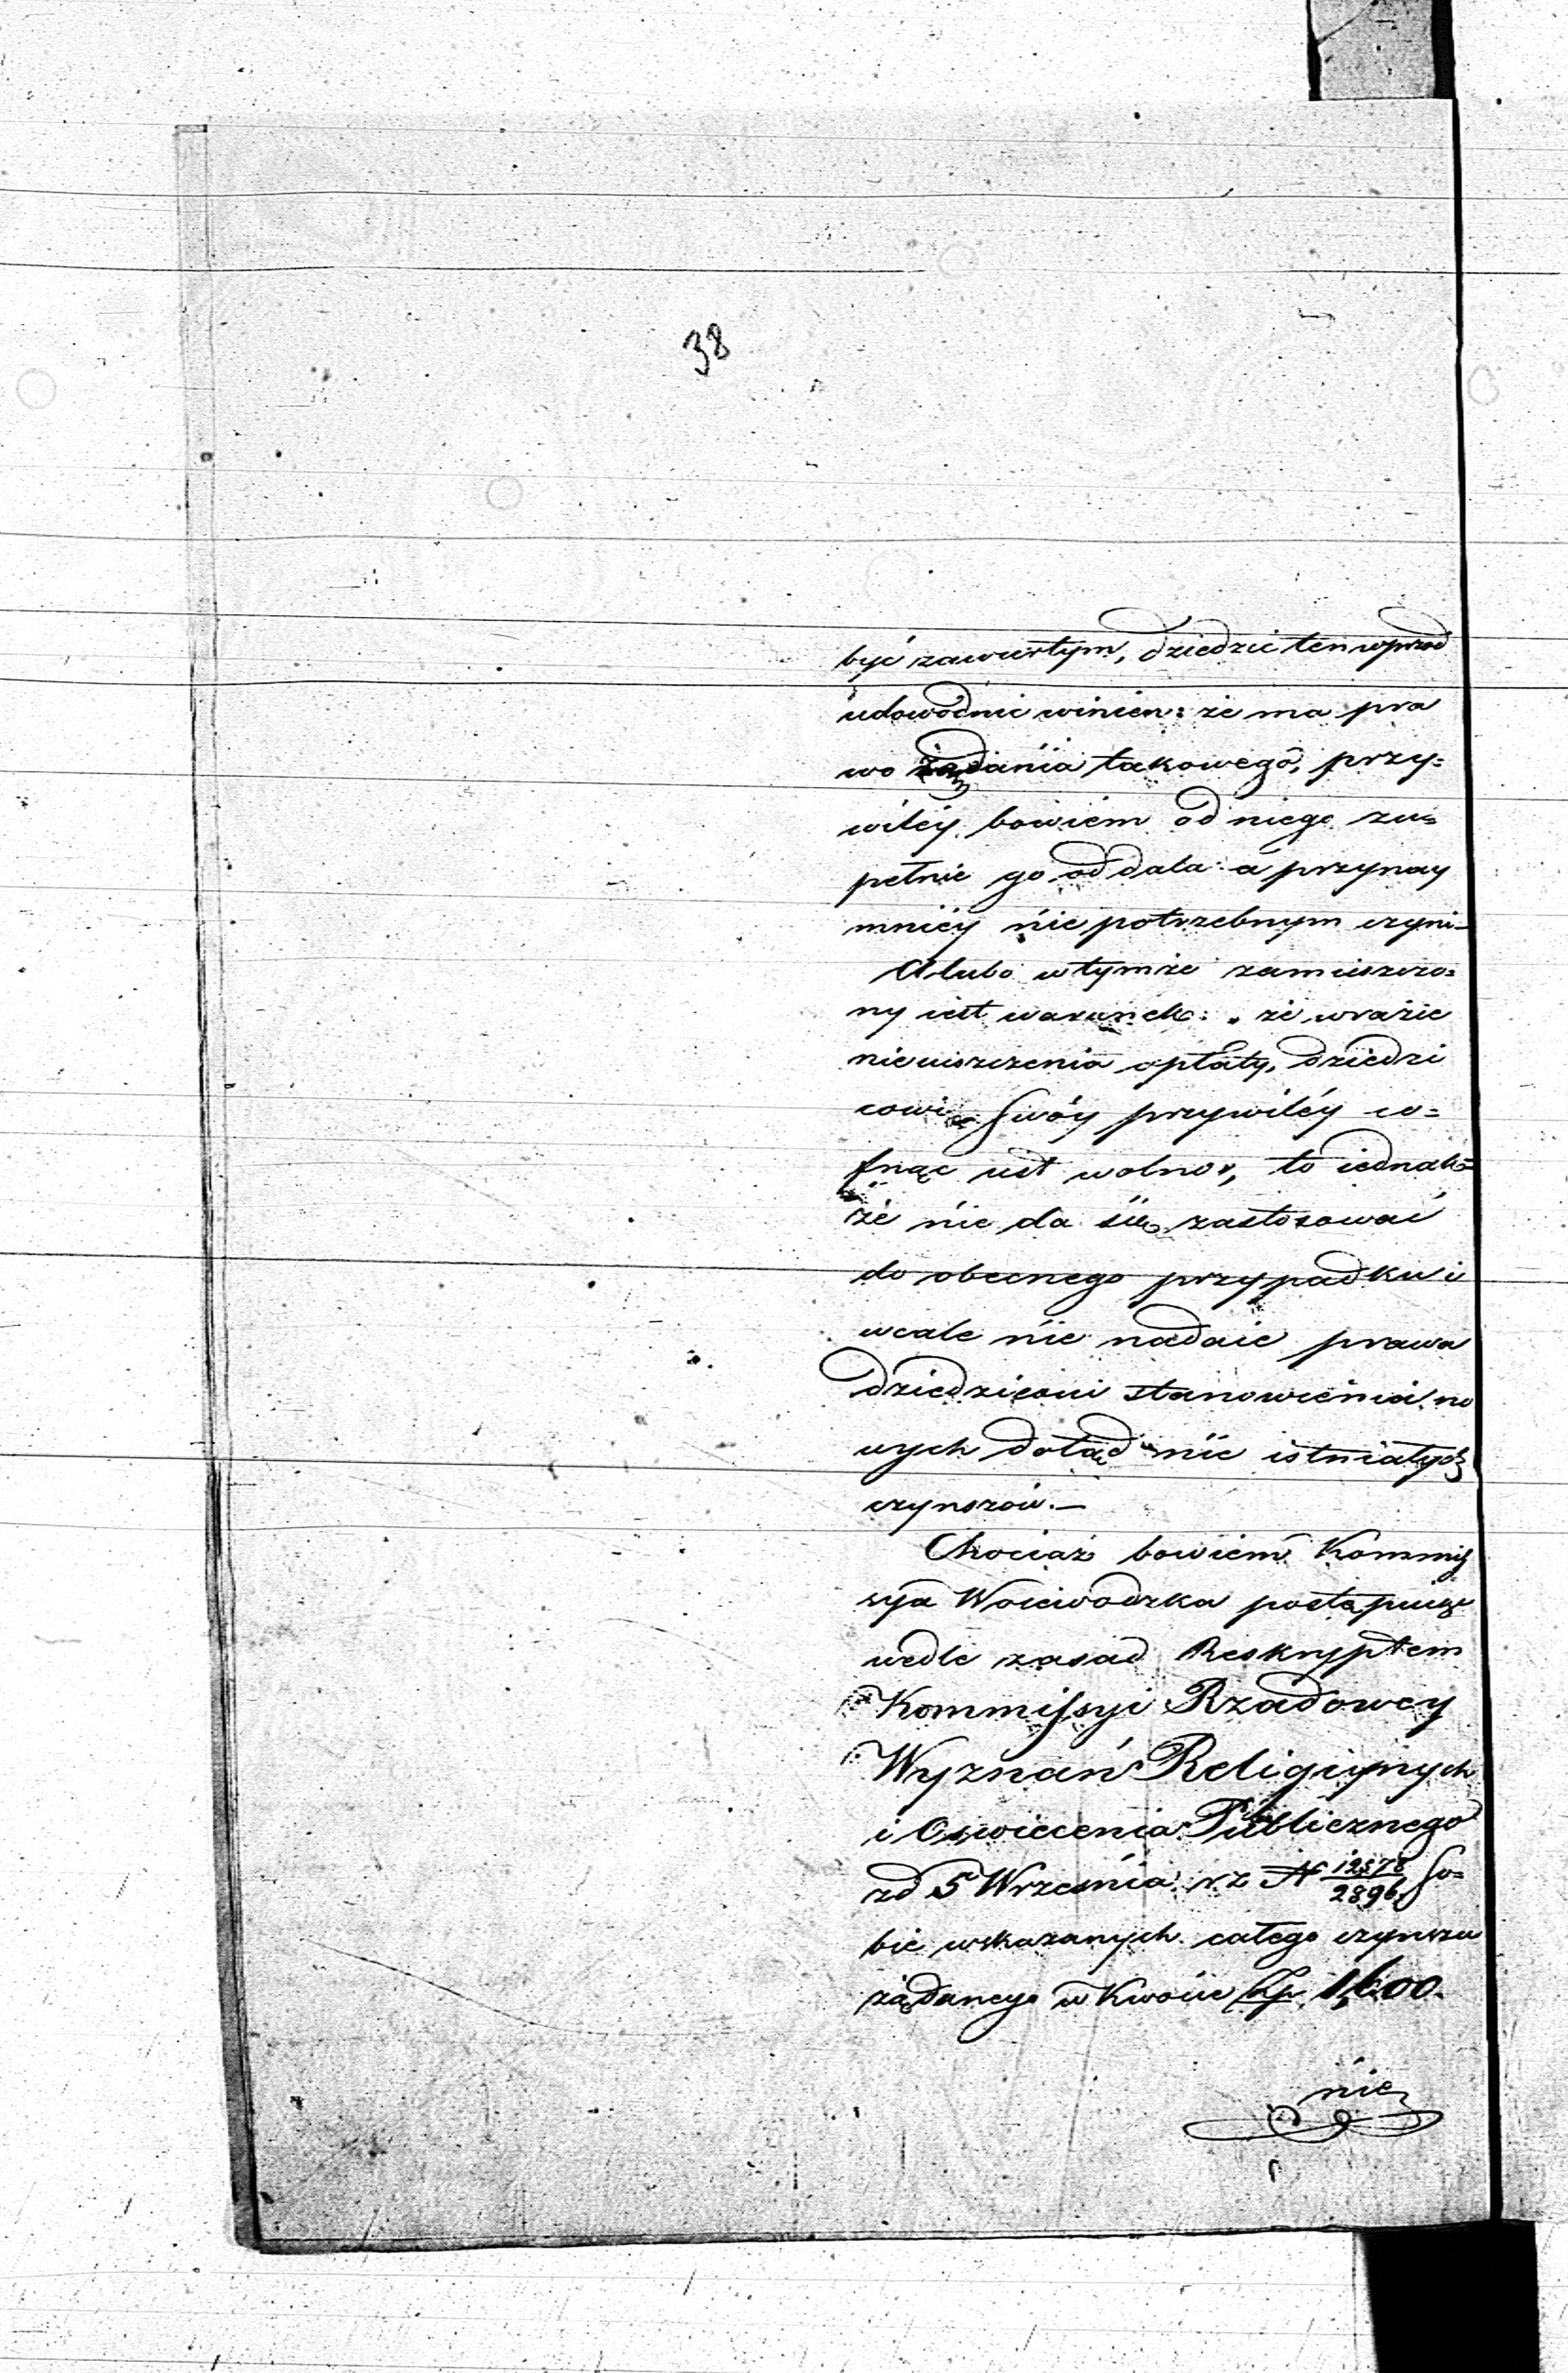 38
być zawartym, dziedzic ten wprzod
udowodnić winien: że ma pra
wo żądania takowego, przy=
wiley bowiem od niego zu=
pełnie go oddala a przynay
mniéy nie potrzebnym czyni—
A lubo w tymże zamieszczo=
ny iest warunek: „że wrazie
nieuiszczenia opłaty, dziedzi
cowi swóy przywiléy co=
fnąć iest wolno", to iednak=
że nie da się zastosować
do obecnego przypadku i
wcale nie nadaie prawa
dziedzicowi stanowienia no
wych dotąd nie istniałych
czynszów.—
Chociaż bowiem Kommis
sya Woiewodzka postąpiwszy
wedle zasad Reskryptem
Kommissyi Rządowey
Wyznań Religiynych
i Oswiecenia Publicznego
zd 5 Września r.z. N 12578/2896 So=
bie wskazanych całego czynszu
żądanego w Kwocie Złp 1,600.
nie